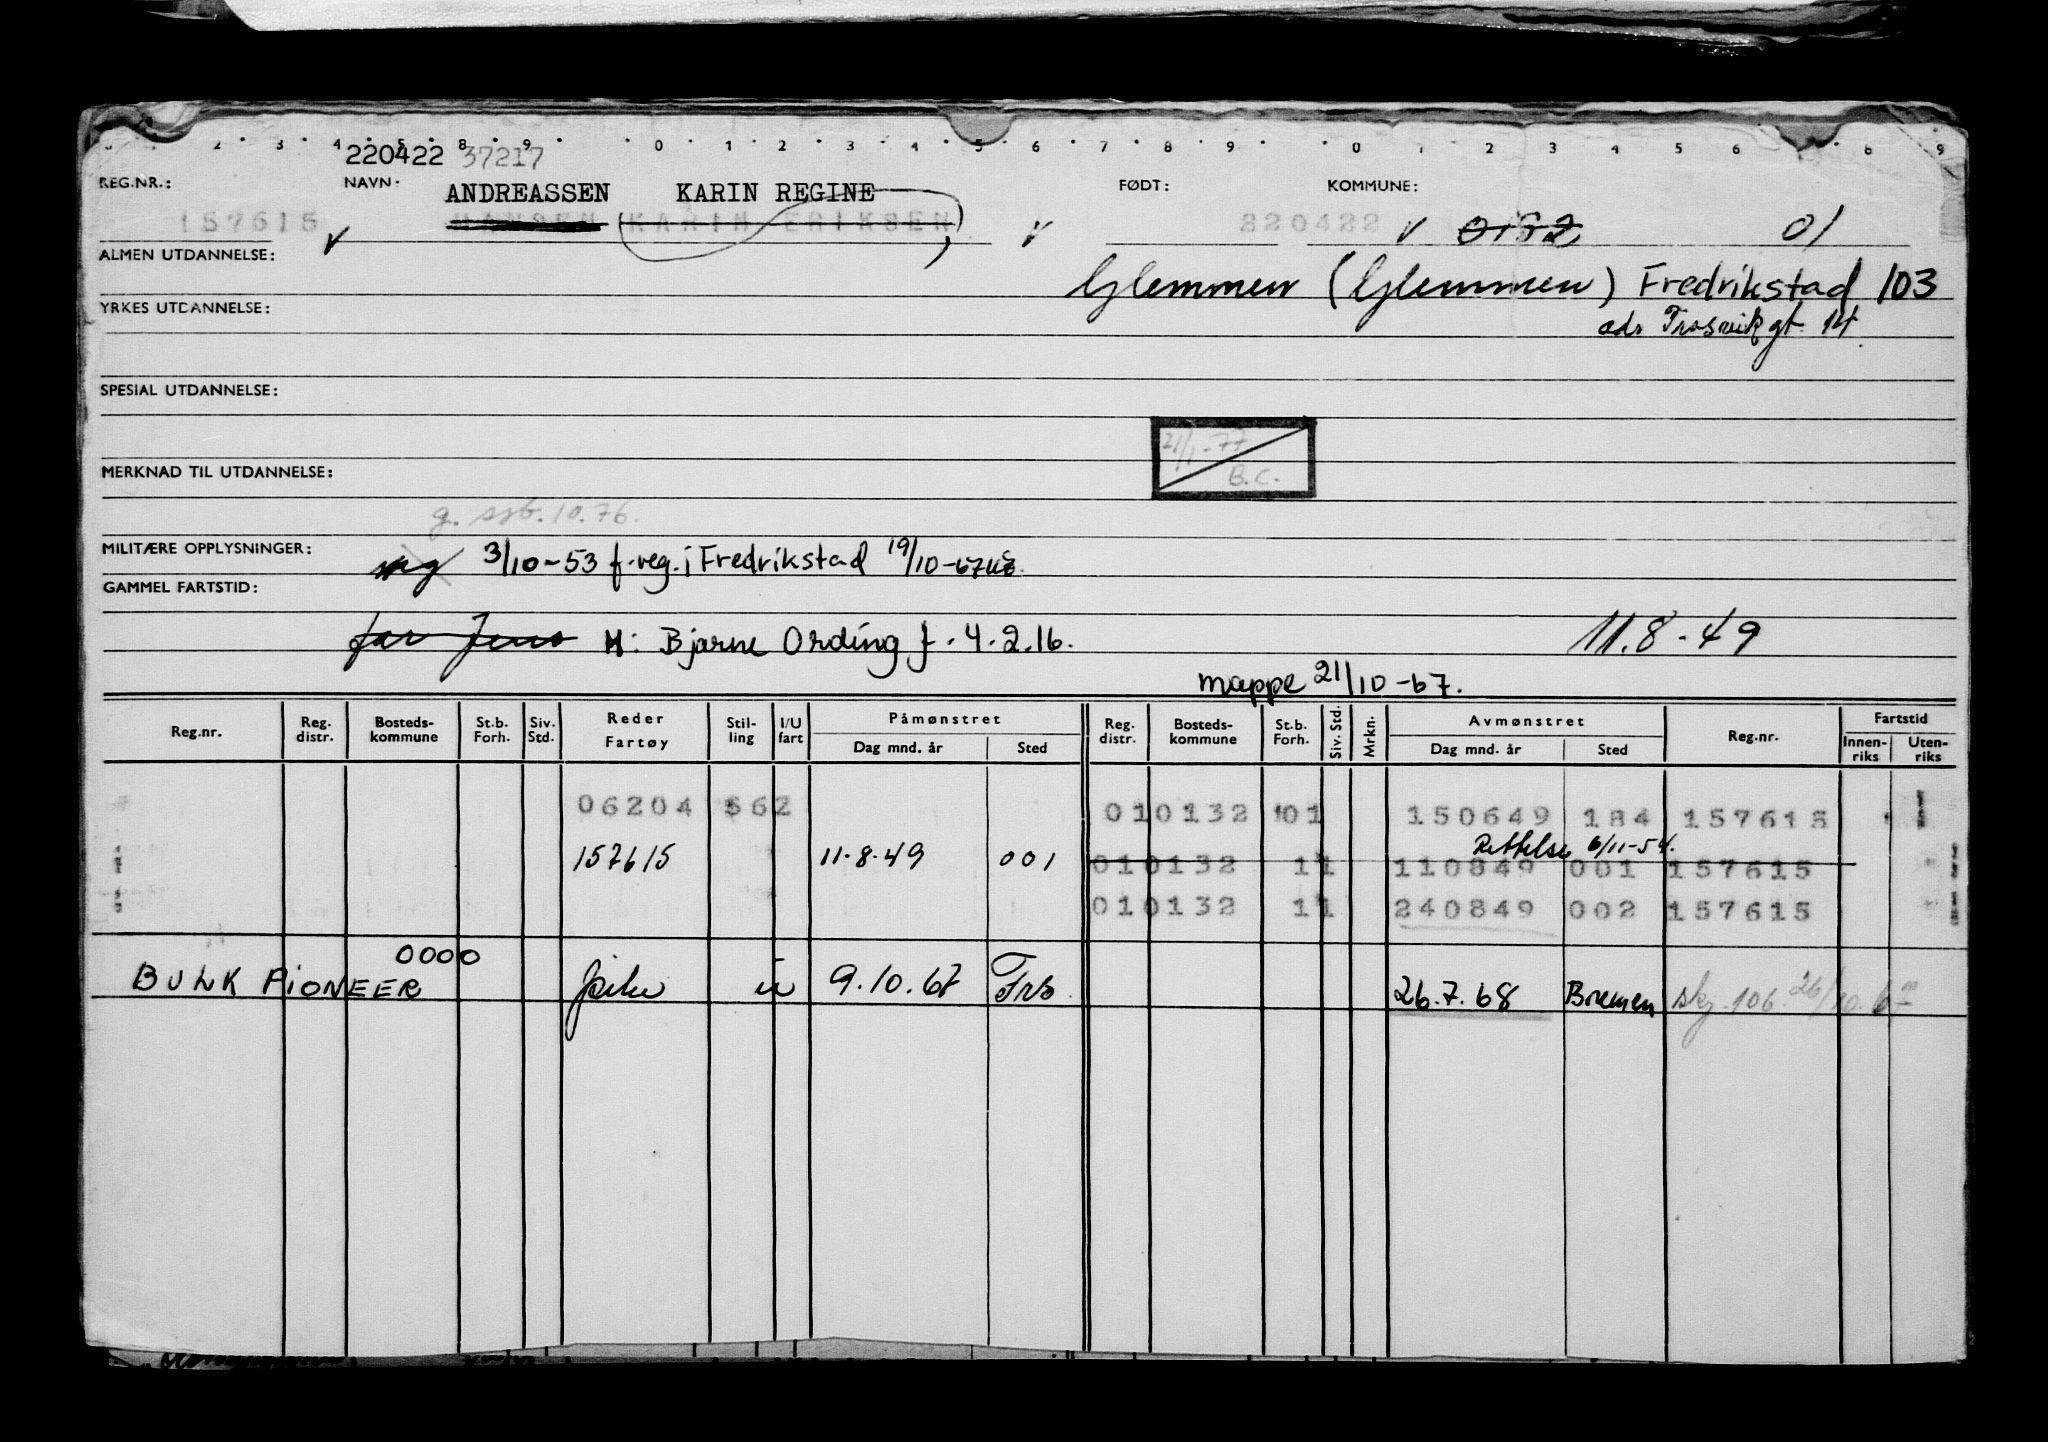 2 3 4 5 8 9 0 1 2 3 4 5 6 7 8 9 0 1 2 3 4 5 6 8 9
220422 37217
REG.NR.: NAVN: ANDREASSEN KARIN REGINE FØDT: KOMMUNE:
157615 v HANSEN (KARIN ERIKSEN) v 220422 v 0132 01
ALMEN UTDANNELSE:
Glemmen (Glemmen) Fredrikstad 103
YRKES UTDANNELSE:
adr Trosvikgt. 14
SPESIAL UTDANNELSE:
21/1-77
B.C.
MERKNAD TIL UTDANNELSE:
g. sjb. 10.76.
MILITÆRE OPPLYSNINGER:
3/10-53 f.reg. i Fredrikstad 19/10-67
GAMMEL FARTSTID:
far Jens M: Bjarne Ording f. 4.2.16. 11.8.49
mappe 21/10-67.
Reg.nr. Reg. distr. Bosteds-kommune St.b. Forh. Siv. Std. Reder Fartøy Stil-ling I/U fart Påmønstret Dag mnd. år Sted Reg. distr. Bosteds-kommune St.b. Forh. Siv. Std. Mrkn. Avmønstret Dag mnd. år Sted Reg.nr. Fartstid Innen-riks Uten-riks
06204 562 010132 01 150649 184 157615
Rettelse 6/11-54.
157615 11.8.49 001 010132 11 110849 001 157615
010132 11 240849 002 157615
0000
BULK PIONEER pike u 9.10.67 Frs 26.7.68 Bremen skj. 106 26/10.67